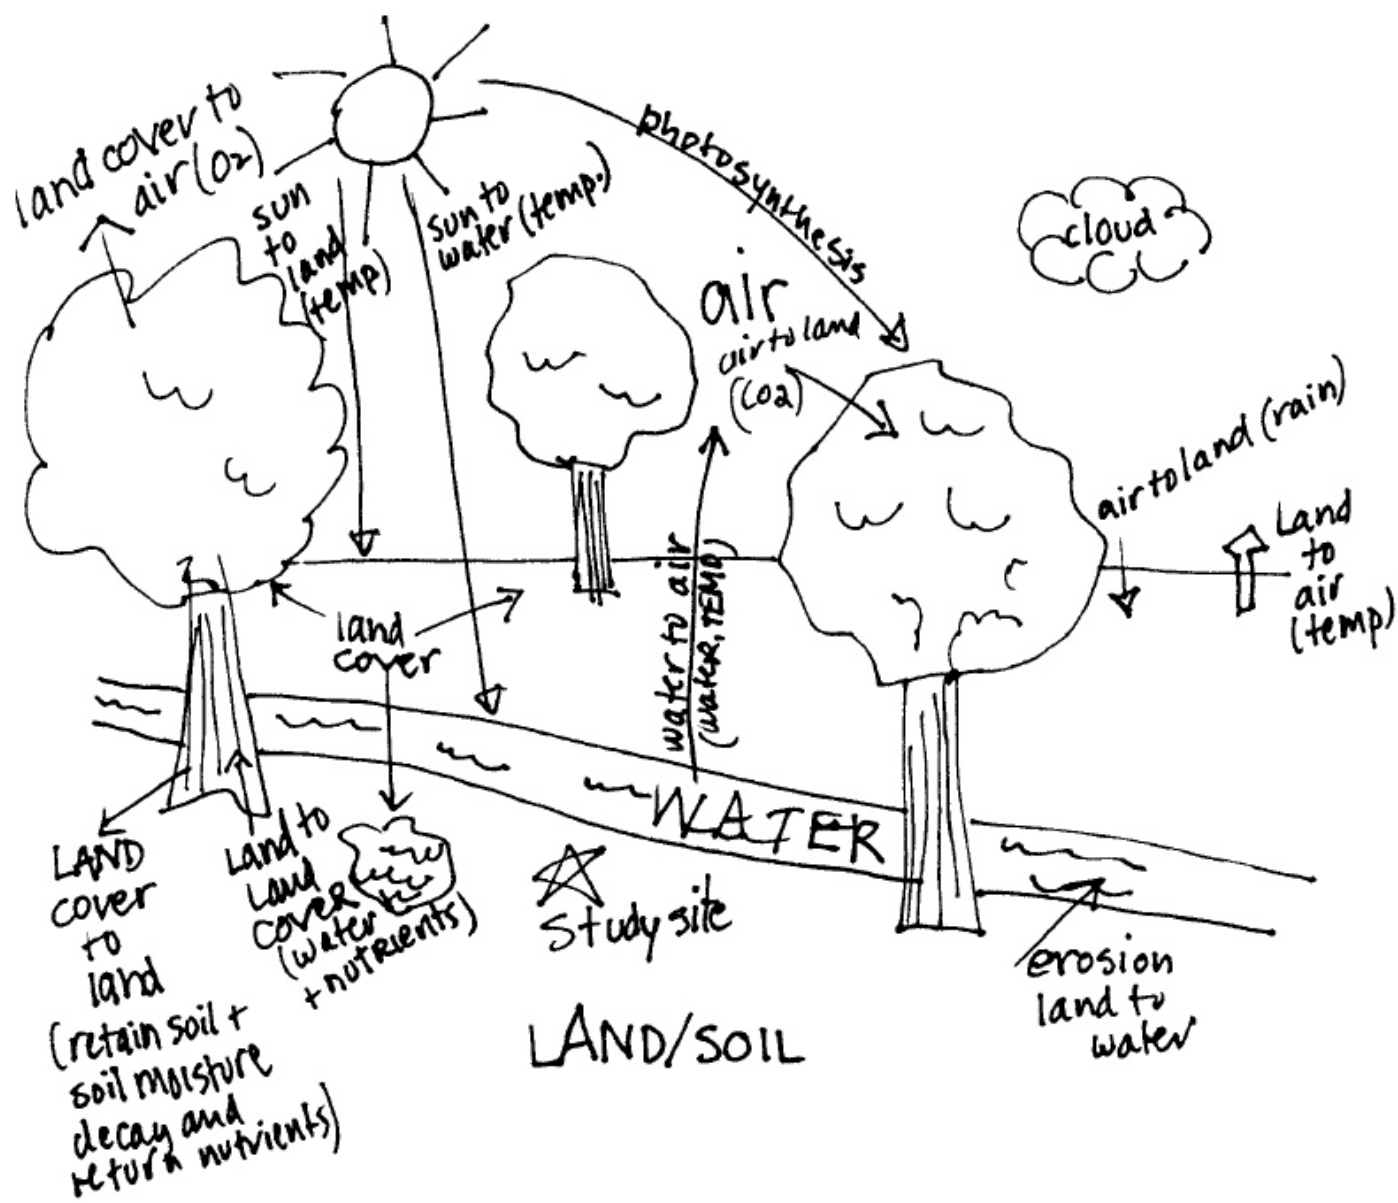 land cover to
air (O2)
sun
to
land
(temp)
sun to
water (temp.)
photosynthesis
cloud
air
air to land
(CO2)
air to land (rain)
Land
to
air
(temp)
land
cover
water to air
(water, TEMP)
WATER
LAND
cover
to
land
(retain soil +
soil moisture
decay and
return nutrients)
Land to
Land
COVER
(water
+ nutrients)
Study site
LAND/SOIL
erosion
land to
water